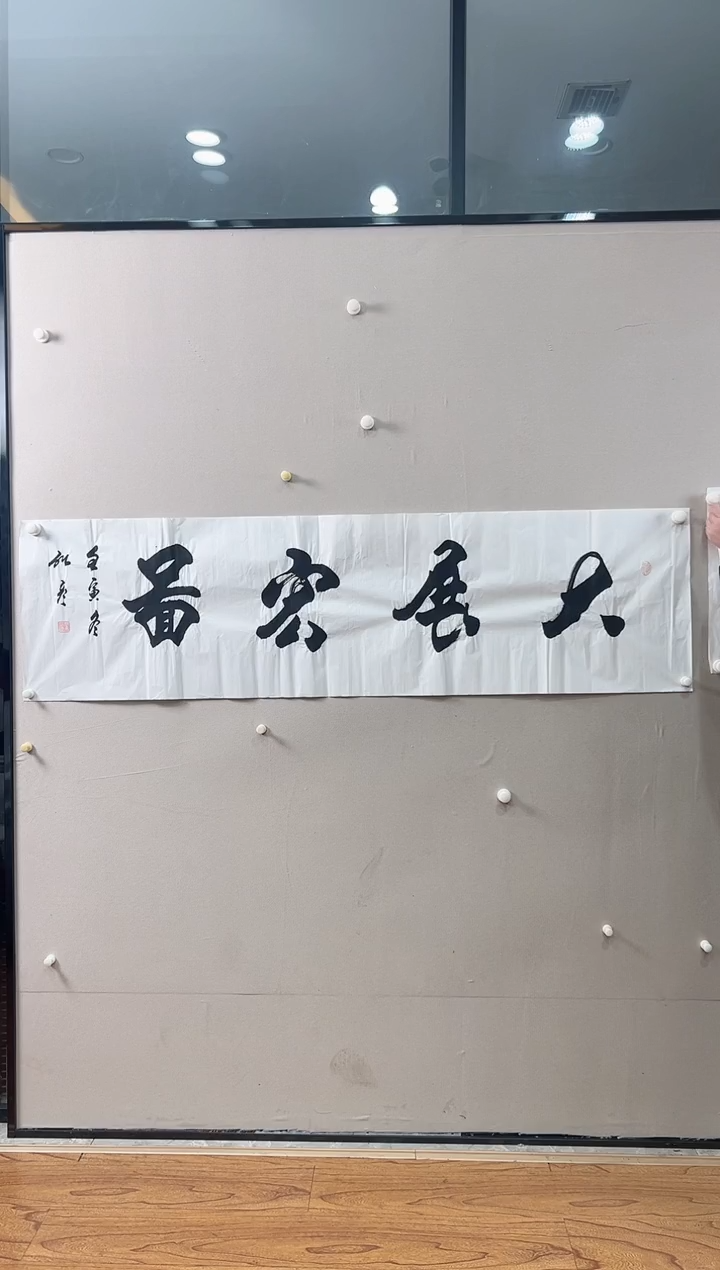 大展宏圖
壬寅冬